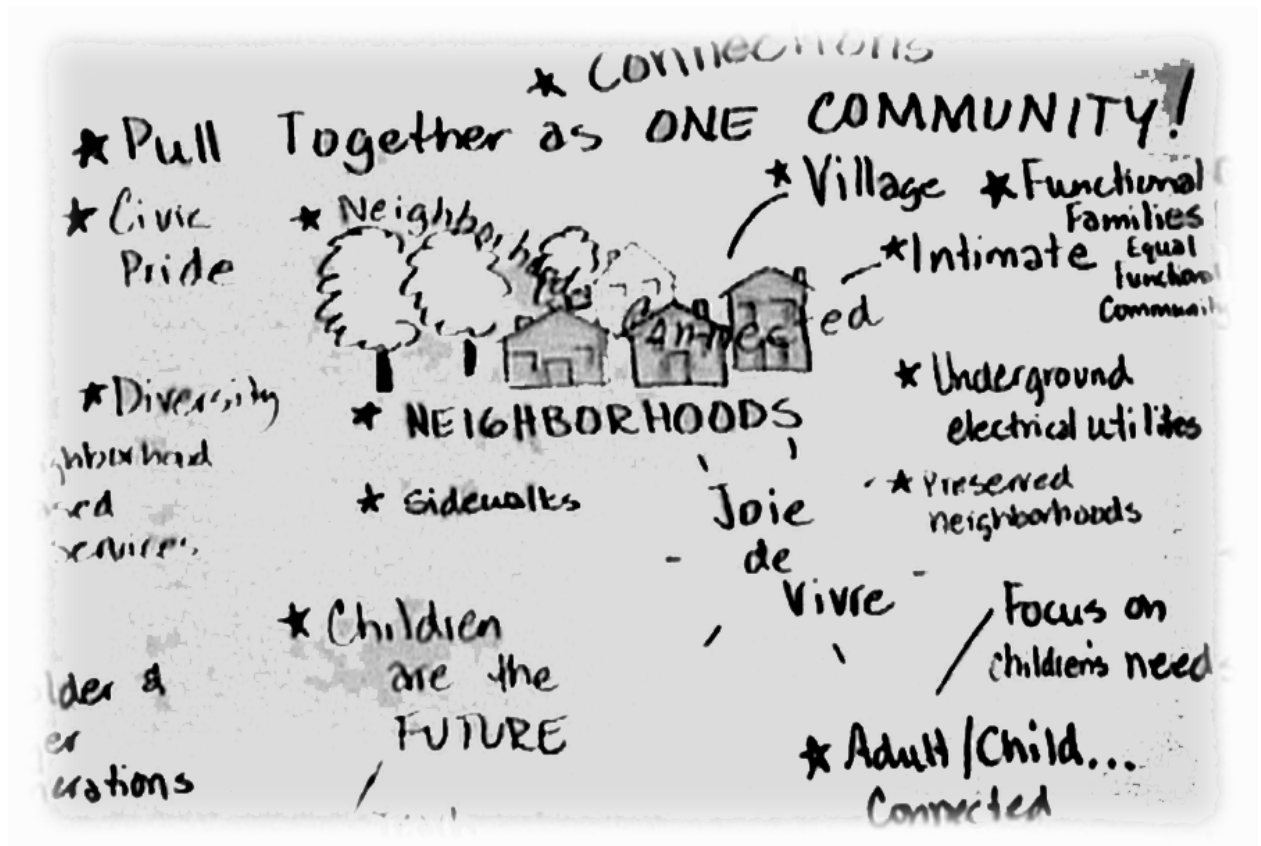 ★ Connections
★ Pull Together as ONE COMMUNITY!
★ Civic
Pride
★ Neighborhoods
Connected
★ Village
★ Functional
Families
Equal
functional
Community
★ Intimate
★ Diversity
★ NEIGHBORHOODS
★ Underground
electrical utilites
ghborhood
services
★ Sidewalks
Joie
de
Vivre
★ Preserved
neighborhoods
★ Children
are the
FUTURE
Focus on
children's need
lder &
er
erations
★ Adult/Child...
Connected